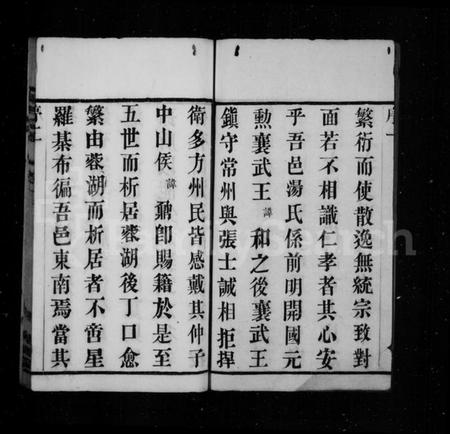 繁衍而使散逸無統宗致對
面若不相識仁孝者其心安
乎吾邑湯氏係前明開國元
勲襄武王諱和之後襄武王
鎮守常州與張士誠相拒捍
衛多方州民皆感戴其仲子
中山侯諱鼐卽賜籍於是至
五世而析居蓉湖後丁口愈
繁由蓉湖而析居者不啻星
羅棊布徧吾邑東南焉當其